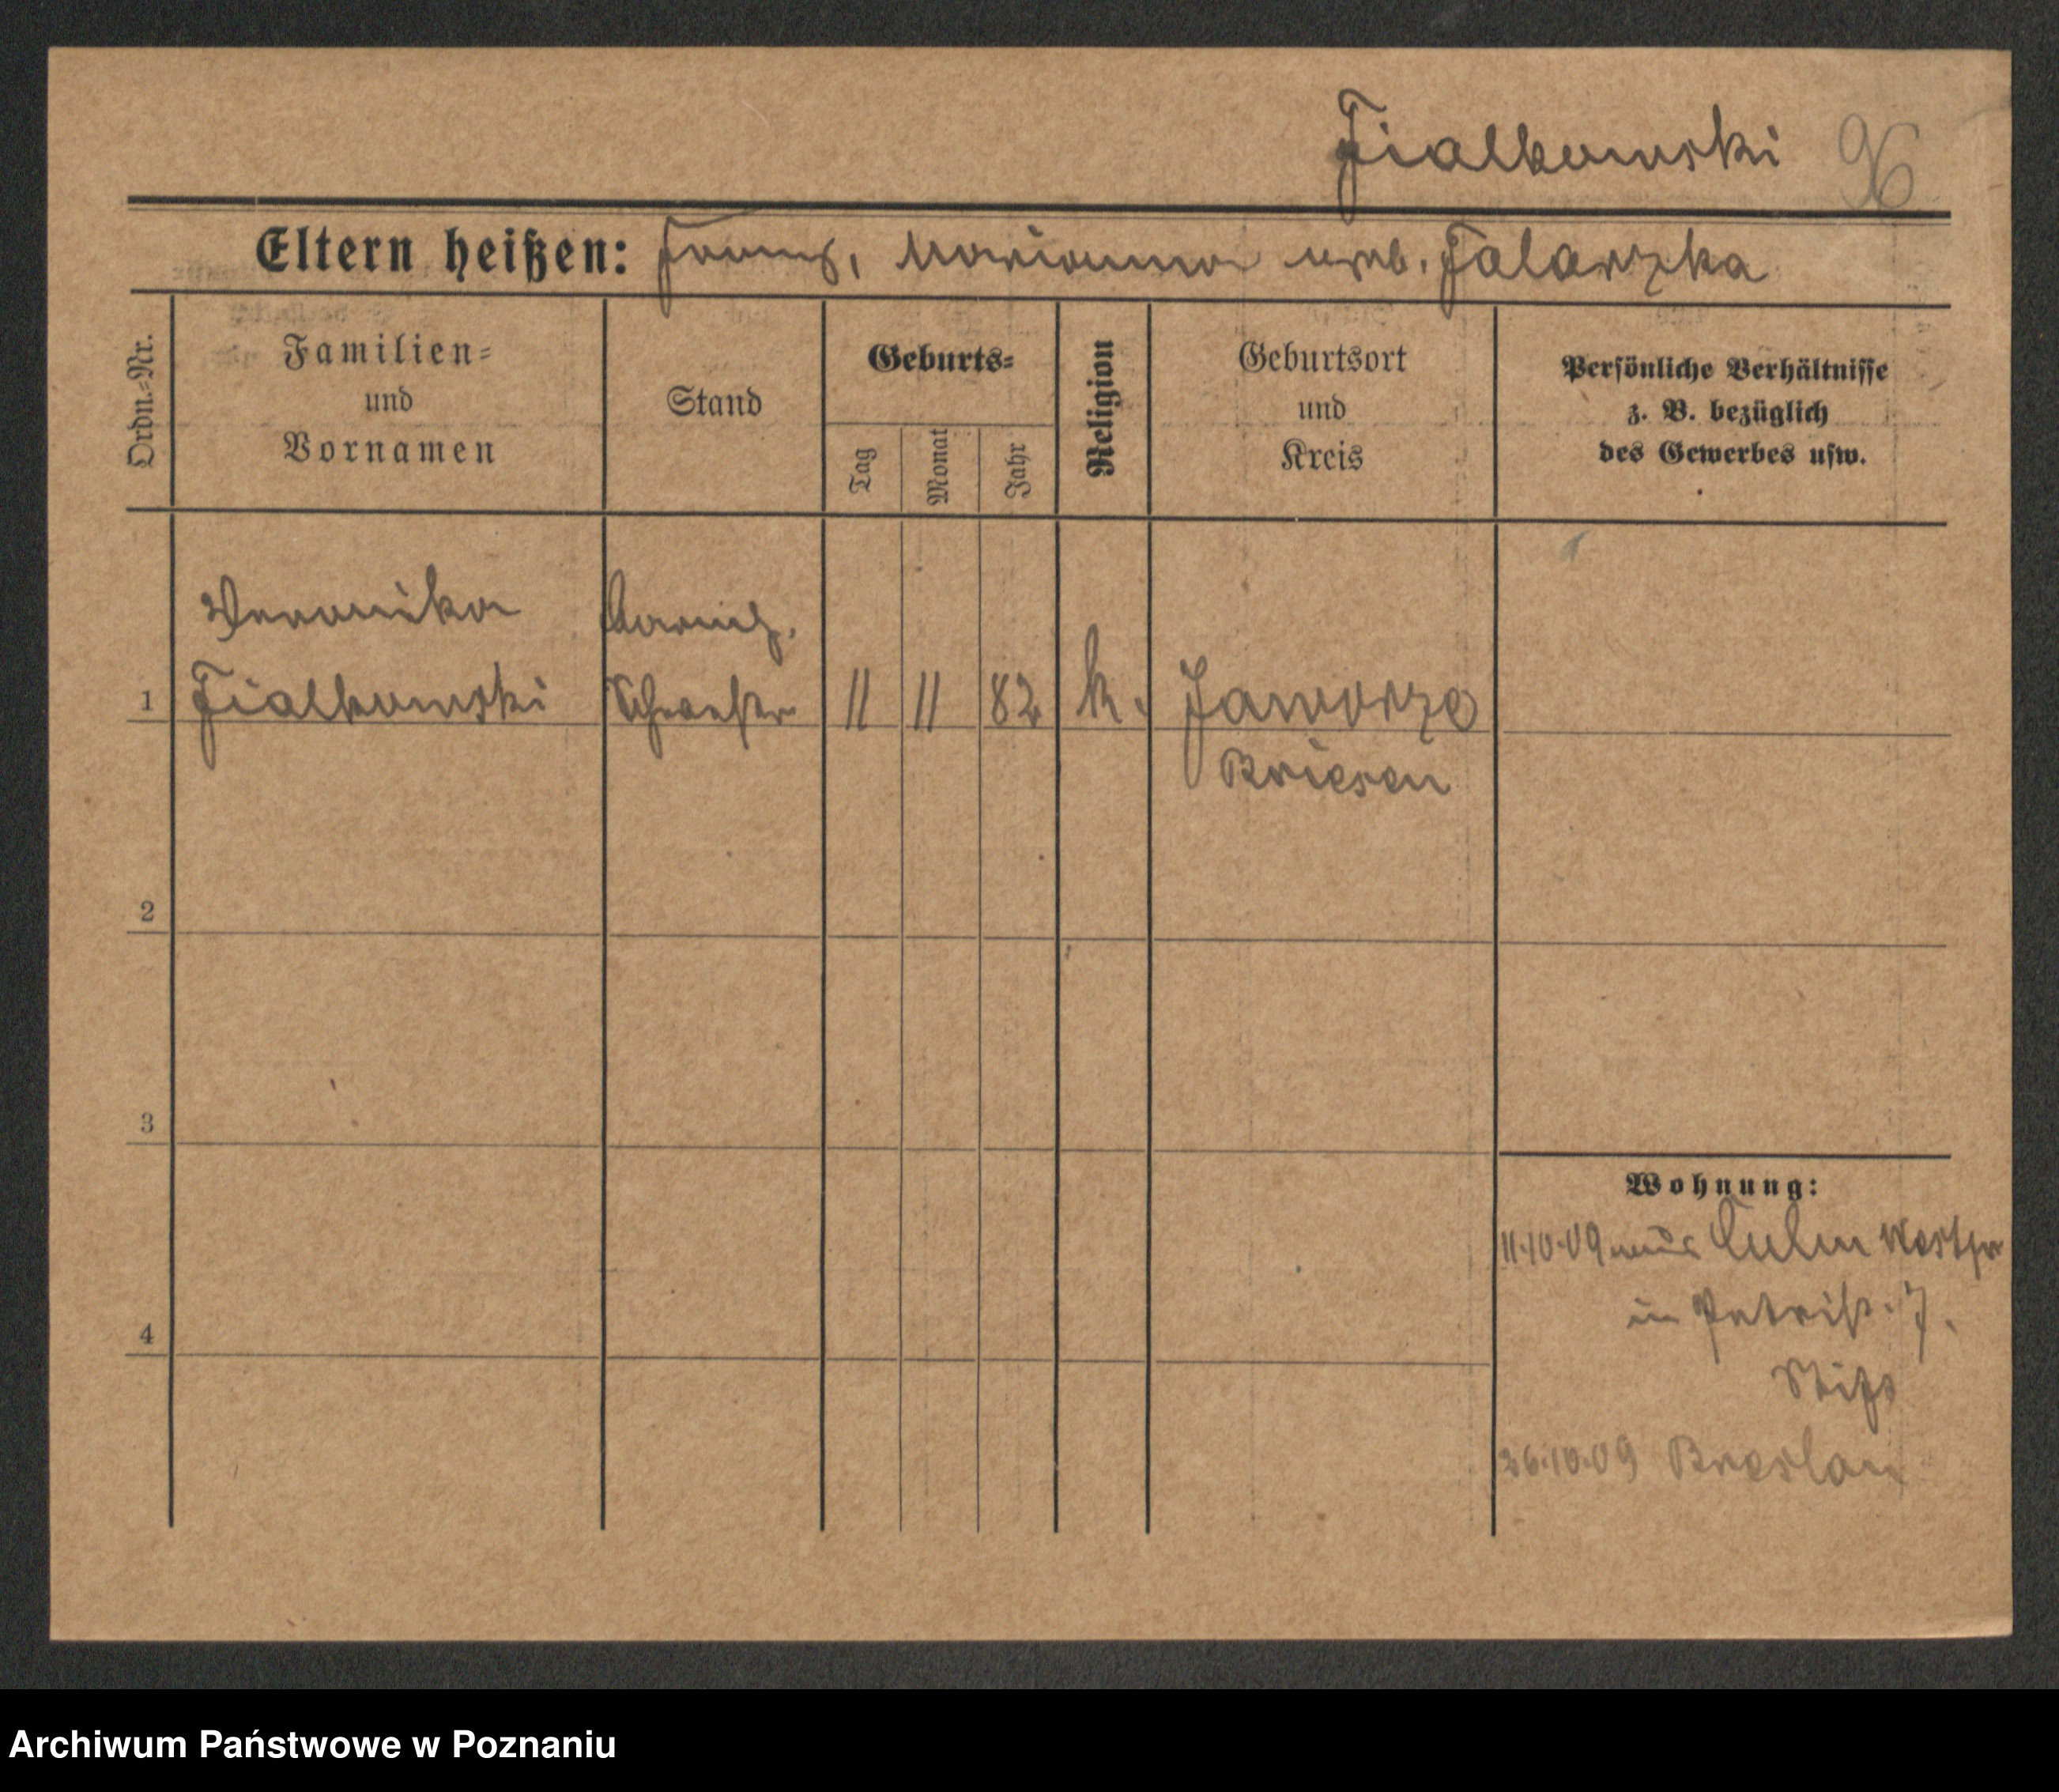 Fialkowski 96
Eltern heißen: Franz, Marianna geb. Falarzka
Ordn.=Nr.
Familien=
und
Vornamen
Stand
Geburts=
Tag
Monat
Jahr
Religion
Geburtsort
und
Kreis
Persönliche Verhältnisse
z. B. bezüglich
des Gewerbes usw.
Veronika Barmh.
1 Fialkowski Schwester 11 11 82 k. Jaworze
Briesen
2
3
4
Wohnung:
11.10.09 aus Culm Westpr
in Petristr. 7.
Stift
26.10.09 Breslau
Archiwum Państwowe w Poznaniu